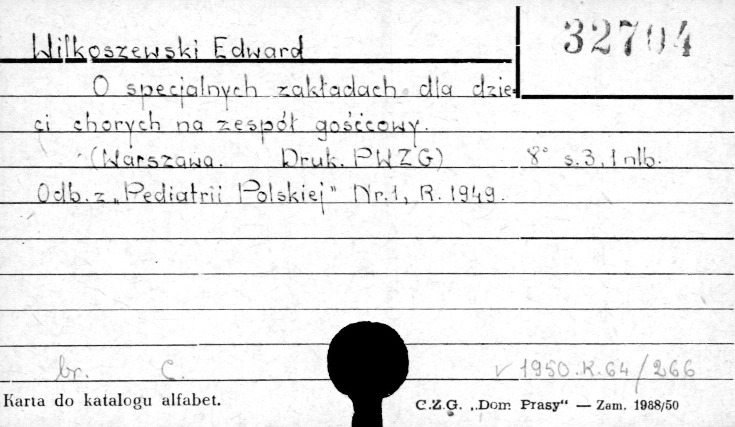 32704
Wilkoszewski Edward
O specjalnych zakładach dla dzie-
ci chorych na zespół gośćcowy.
(Warszawa. Druk. PWZG) 8° s. 3, 1 nlb.
Odb. z „Pediatrii Polskiej" Nr. 1, R. 1949.
br. C. v 1950.K.64/266
Karta do katalogu alfabet.
C.Z.G. „Dom Prasy“ — Zam. 1988/50